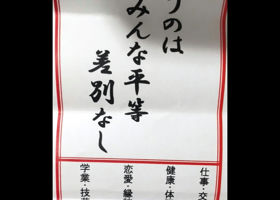 りのは
みんな平等
差別なし
仕事・交
健康・体
恋愛・縁
学業・技芸